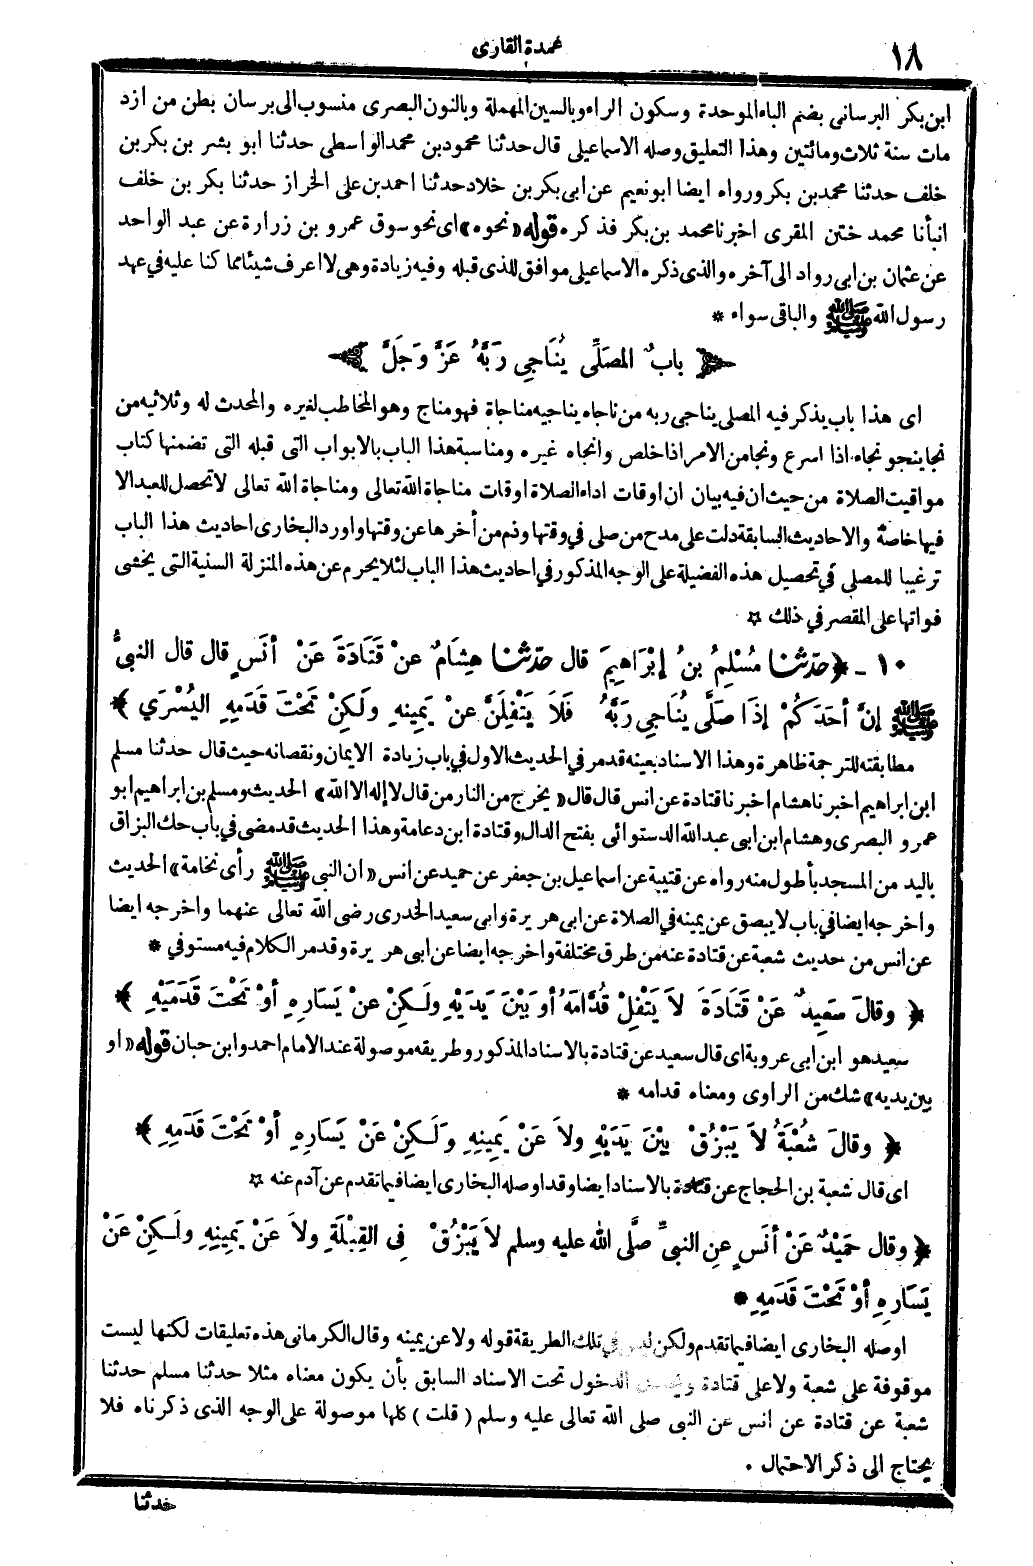 ١٨
عمدة القارى
ابن بكر البرسانى بضم الباء الموحدة وسكون الراء وبالسين المهملة وبالنون البصرى منسوب الى برسان بطن من ازد
مات سنة ثلاث ومائتين وهذا التعليق وصله الاسماعيلى قال حدثنا محمود بن محمد الواسطى حدثنا ابو بشر بن بكر بن
خلف حدثنا محمد بن بكر ورواه ايضا ابو نعيم عن ابى بكر بن خلاد حدثنا احمد بن على الخراز حدثنا بكر بن خلف
انبأنا محمد ختن المقرى اخبرنا محمد بن بكر فذكره. قوله «نحوه» اى نحو سوق عمرو بن زرارة عن عبد الواحد
عن عثمان بن ابى رواد الى آخره والذى ذكره الاسماعيلى موافق للذى قبله وفيه زيادة وهى لا اعرف شيئا مما كنا عليه في عهد
رسول الله ﷺ والباقى سواء *
﴿ بابٌ المصَلِّى يُنَاجِي رَبَّهُ عَزَّ وَجَلَّ ﴾
اى هذا باب يذكر فيه المصلى يناجى ربه من ناجاه يناجيه مناجاة فهو مناج وهو المخاطب لغيره والمحدث له وثلاثيه من
نجا ينجو نجاه اذا اسرع ونجا من الامر اذا خلص وانجاه غيره ومناسبة هذا الباب بالابواب التى قبله التى تضمنها كتاب
مواقيت الصلاة من حيث ان فيه بيان ان اوقات اداء الصلاة اوقات مناجاة الله تعالى ومناجاة الله تعالى لا تحصل للعبد الا
فيها خاصة والاحاديث السابقة دلت على مدح من صلى في وقتها وذم من أخرها عن وقتها واورد البخارى احاديث هذا الباب
ترغيبا للمصلى في تحصيل هذه الفضيلة على الوجه المذكور في احاديث هذا الباب لئلا يحرم عن هذه المنزلة السنية التى يخشى
فواتها على المقصر في ذلك ☆
١٠ - ﴿ حدّثنا مُسْلِمُ بنُ إبْرَاهِيمَ قال حدّثنا هِشَامٌ عنْ قَتَادَةَ عَنْ أنَسٍ قال قال النبيُّ
ﷺ إنَّ أحَدَكُمْ إذَا صَلَّى يُنَاجِي رَبَّهُ فَلَا يَتْفِلَنَّ عنْ يَمِينِهِ ولَكِنْ تَحْتَ قَدَمِهِ اليُسْرَي ﴾
مطابقته للترجمة ظاهرة وهذا الاسناد بعينه قد مر في الحديث الاول في باب زيادة الايمان ونقصانه حيث قال حدثنا مسلم
ابن ابراهيم اخبرنا هشام اخبرنا قتادة عن انس قال قال «يخرج من النار من قال لا إله الا الله» الحديث ومسلم بن ابراهيم ابو
عمرو البصرى وهشام ابن ابى عبد الله الدستوائى بفتح الدال وقتادة ابن دعامة وهذا الحديث قد مضى في باب حك البزاق
باليد من المسجد بأطول منه رواه عن قتيبة عن اسماعيل بن جعفر عن حميد عن انس «ان النبى ﷺ رأى نخامة» الحديث
واخرجه ايضا في باب لا يبصق عن يمينه في الصلاة عن ابى هريرة وابى سعيد الخدرى رضى الله تعالى عنهما واخرجه ايضا
عن انس من حديث شعبة عن قتادة عنه من طرق مختلفة واخرجه ايضا عن ابى هريرة وقد مر الكلام فيه مستوفي *
﴿ وقالَ سَعِيدٌ عَنْ قَتَادَةَ لاَ يَتْفِلْ قُدَّامَهُ أو بَيْنَ يَدَيْهِ ولَكِنْ عنْ يَسَارِهِ أوْ تَحْتَ قَدَمَيْهِ ﴾
سعيد هو ابن ابى عروبة اى قال سعيد عن قتادة بالاسناد المذكور وطريقه موصولة عند الامام احمد وابن حبان قوله «او
بين يديه» شك من الراوى ومعناه قدامه *
﴿ وقالَ شُعْبَةُ لاَ يَبْزُقْ بيْنَ يَدَيْهِ ولاَ عَنْ يَمِينِهِ وَلَكِنْ عَنْ يَسَارِهِ أوْ تَحْتَ قَدَمِهِ ﴾
اى قال شعبة بن الحجاج عن قتادة بالاسناد ايضا وقد اوصله البخارى ايضا فيما تقدم عن آدم عنه ☆
﴿ وقال حُمَيْدٌ عَنْ أنَسٍ عنِ النبيِّ صلَّى الله عليه وسلم لاَ يَبْزُقْ فِى القِبْلَةِ ولاَ عَنْ يَمِينِهِ ولَكِنْ عَنْ
يَسَارِهِ أوْ تَحْتَ قَدَمِهِ *
اوصله البخارى ايضا فيما تقدم ولكن ليس في تلك الطريقة قوله ولا عن يمينه وقال الكرمانى هذه تعليقات لكنها ليست
موقوفة على شعبة ولا على قتادة ويحتمل الدخول تحت الاسناد السابق بأن يكون معناه مثلا حدثنا مسلم حدثنا
شعبة عن قتادة عن انس عن النبى صلى الله تعالى عليه وسلم (قلت) كلها موصولة على الوجه الذى ذكرناه فلا
يحتاج الى ذكر الاحتمال .
حدثنا